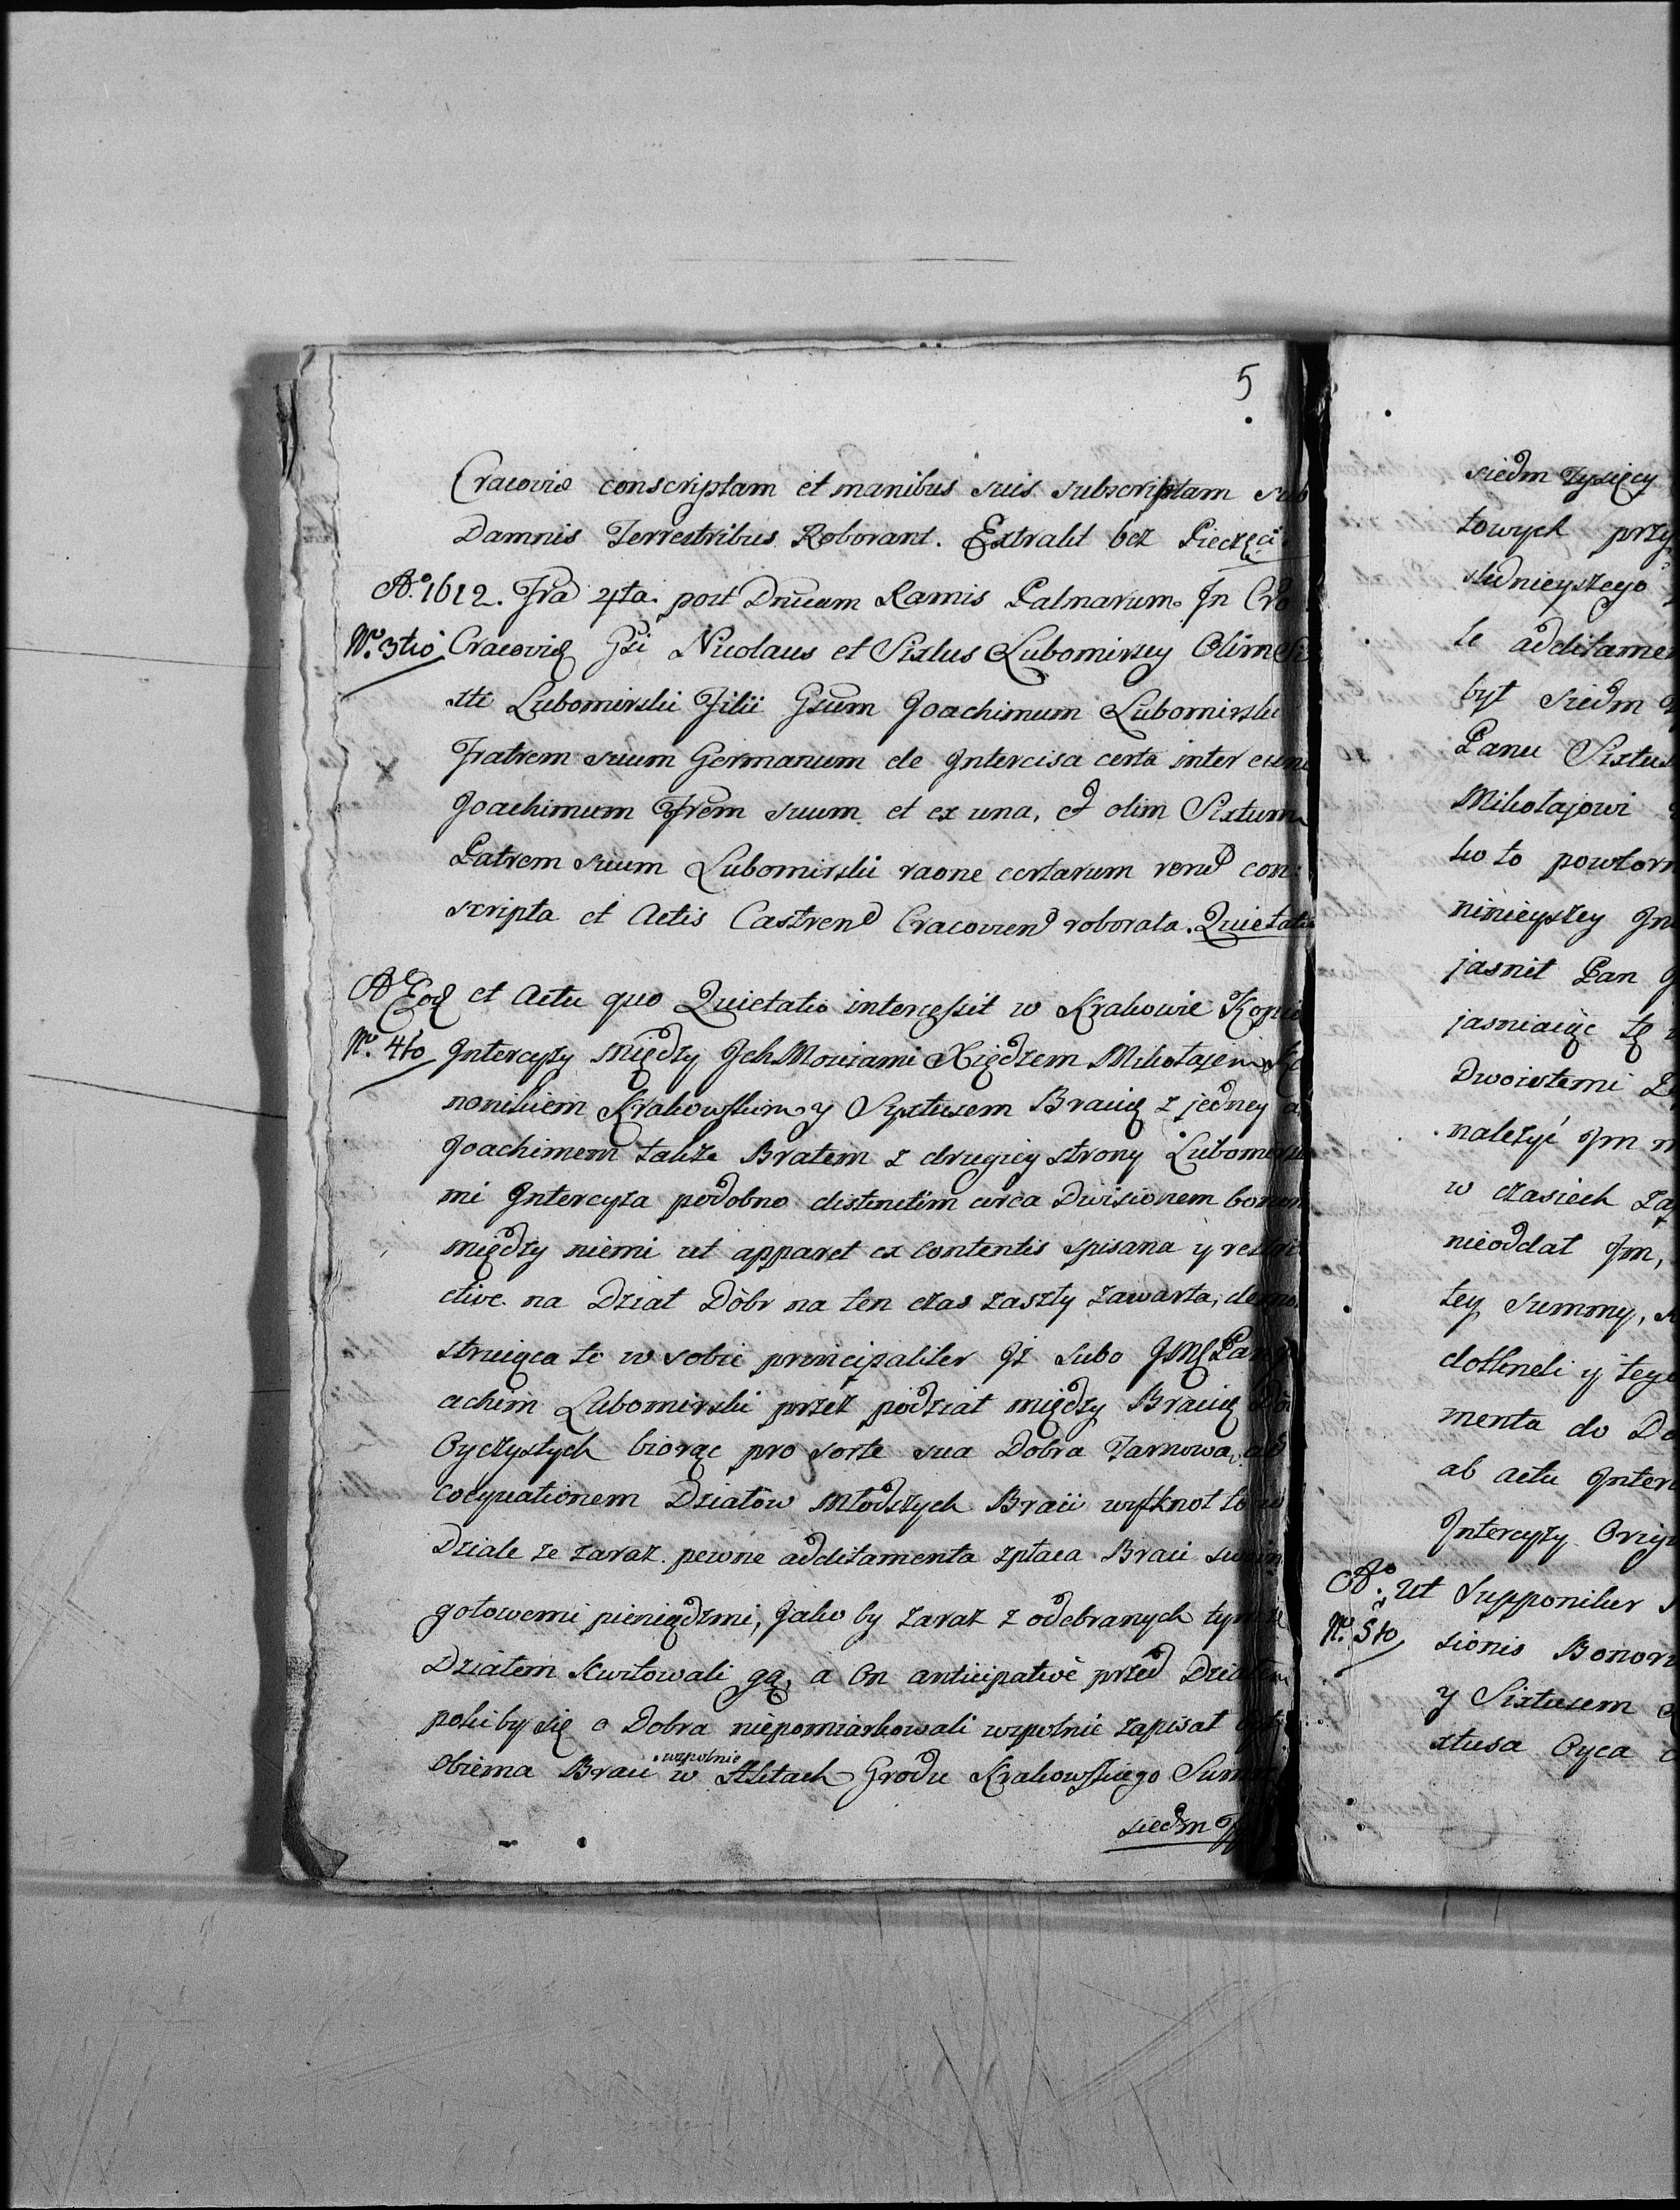 5
Cracoviæ conscriptam et manibus suis subscriptam sub
Damnis Terrestribus Roborant. Extrakt bez Pieczęci.
Aº. 1612. Fra 4ta post Dnicam Ramis Palmarum. In Cro
Nº. 3tio Cracovię Gsi Nicolaus et Sixtus Lubomirscy Olim Si
xti Lubomirski Filii Gsum Joachimum Lubomirski
Fratrem suum Germanum de Intercisa certa inter eum
Joachimum Frem suum et ex una, et olim Sixtum
Patrem suum Lubomirski raone certarum rerum con:
scripta et Actis Castren Cracovien roborata. Quietatio
Aº Eod et Actu quo Quietatio intercessit w Krakowie Kopia
Nº. 4to Intercyzy między Ich Mościami Xiędzem Mikołajem Ka
nonikiem Krakowskim y Syxtusem Bracią z jedney a
Joachimem także Bratem z drugiey strony Lubomirski
mi Intercyza podobno distinctim circa Divisionem bonor
między niemi ut apparet ex contentis spisana y restri
ctive na Dział Dóbr na ten czas zaszły zawarta, demon
struiąca to w sobie principaliter Iż lubo JMć Pan Jo
achim Lubomirski przez podział między Bracią Dób
Oyczystych biorąc pro sorte sua Dobra Tarnowa, ad
coequationem Działów młodszych Braci wytknoł to w
Dziale że zaraz pewne additamenta zpłaca Braci swoim
gotowemi pieniądzmi, Jako by zaraz z odebranych tymże
Działem kwitowali gą, a On anticipativè przed Działem
poki by się o Dobra niepomiarkowali wzpolnie zapisał był
Obiema Braci wzpolnie w Aktach Grodu Krakowskiego Summ
siedm
siedm Tysięcy
towych przy
słudnieyszego
te additamen
był siedm
Panu Sixtus
Mikołajowi
ko to powtorn
ninieyszey In
jasnił Pan
jasniaiąc tę
Dwoistemi
należyć Im
w czasiech
nieoddał Im,
tey Summy,
dotkneli y tey
menta do Do
ab actu Inter
Intercyzy Orig
Aº. ut supponitur
Nº. 5to sionis Bonor
y Sixtusem
xtusa Oyca